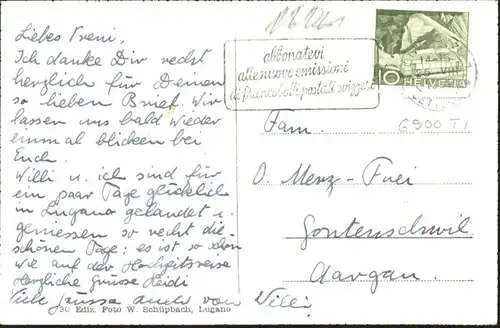 Liebes Vreni,
Ich danke Dir recht
herzlich für Deinen
so lieben Brief. Wir
lassen uns bald wieder
einmal blicken bei
Euch.
Willi u. ich sind für
ein paar Tage glücklich
in Lugano gelandet u.
geniessen so recht die
schönen Tage; es ist so schön
wie auf der Hochzeitsreise
Herzliche Grüsse Heidi
Viele Grüsse auch von Willi
30 Ediz. Foto W. Schüpbach, Lugano
abbonatevi
alle nuove emissioni
di francobolli postali svizzeri
10 HELVETIA
6900 TI
Fam.
O. Merz-Frei
Gontenschwil
Aargau.